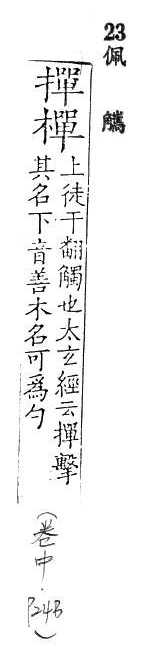 23
佩觿
撣樿
上徒干翻觸也太玄經云撣擊
其名下音善木名可爲勺
(卷中·P24B)